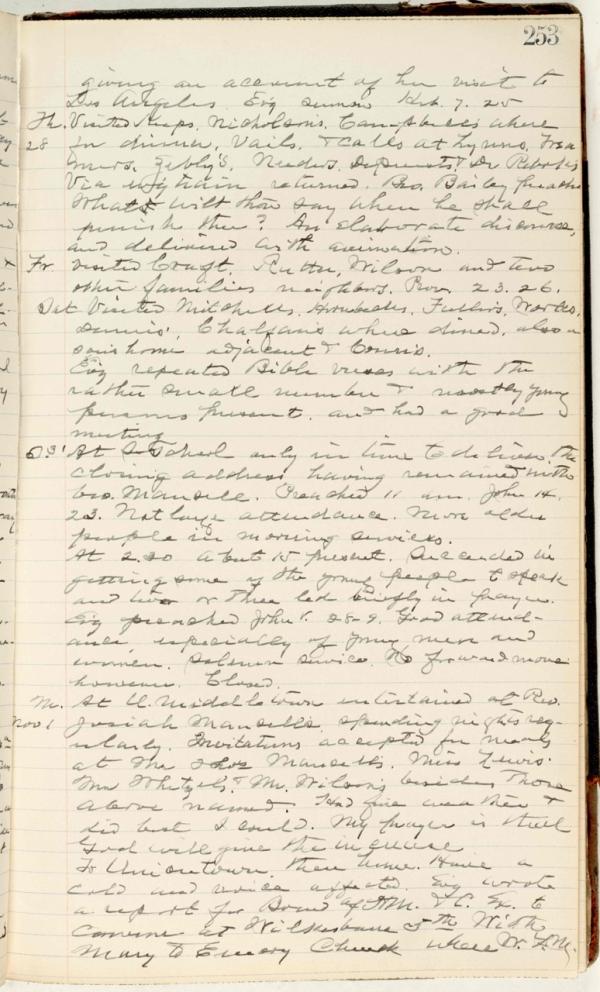 253
giving an account of her visit to
Los Angeles. Evg sermon Heb. 7. 25
Th. Visited Nicholsons, Campbells where
28 for dinner, Vails, & calls at Lynns,
Mrs. Dr
Via train returned. Bro. Bailey preached
What wilt thou say when he shall
punish thee? An elaborate discourse,
and delivered with animation.
Fr. Visited Craft, Wilson and two
other families neighbors. Prov. 23. 26.
Sat Visited Mitchells,
Dennis', Chalfans where dined, also a
sons home adjacent &
Evg repeated Bible verses with the
rather small number & mostly young
persons present, and had a good
meeting
S. 31 At S School only in time to deliver the
closing address, having remained with
Bro. Mansell. Preached 11 am. John 14.
23. Not large attendance. More older
people in morning services.
At 2.30 about 15 present. Succeeded in
getting some of the young people to speak
and two or three led briefly in prayer.
Evg preached John 1. 28-9. Good attend-
ance, especially of young men and
women. Solemn service. No forward move
however. Closed.
M. At U. Middletown entertained at Rev.
Nov 1 Josiah Mansells, spending nights reg-
ularly. Invitations accepted for meals
at the Mansells, Miss Lewis'
Wm Whetzels, & Mr. Wilsons besides those
above named. Had fine weather &
did best I could. My prayer is that
God will give the increase.
To Uniontown, then home. Have a
cold and voice affected. Evg wrote
a report for Board of H.M. & C. Ex. to
convene at Wilkesbarre 5th With
Mary to Emory Church where W. F.M.